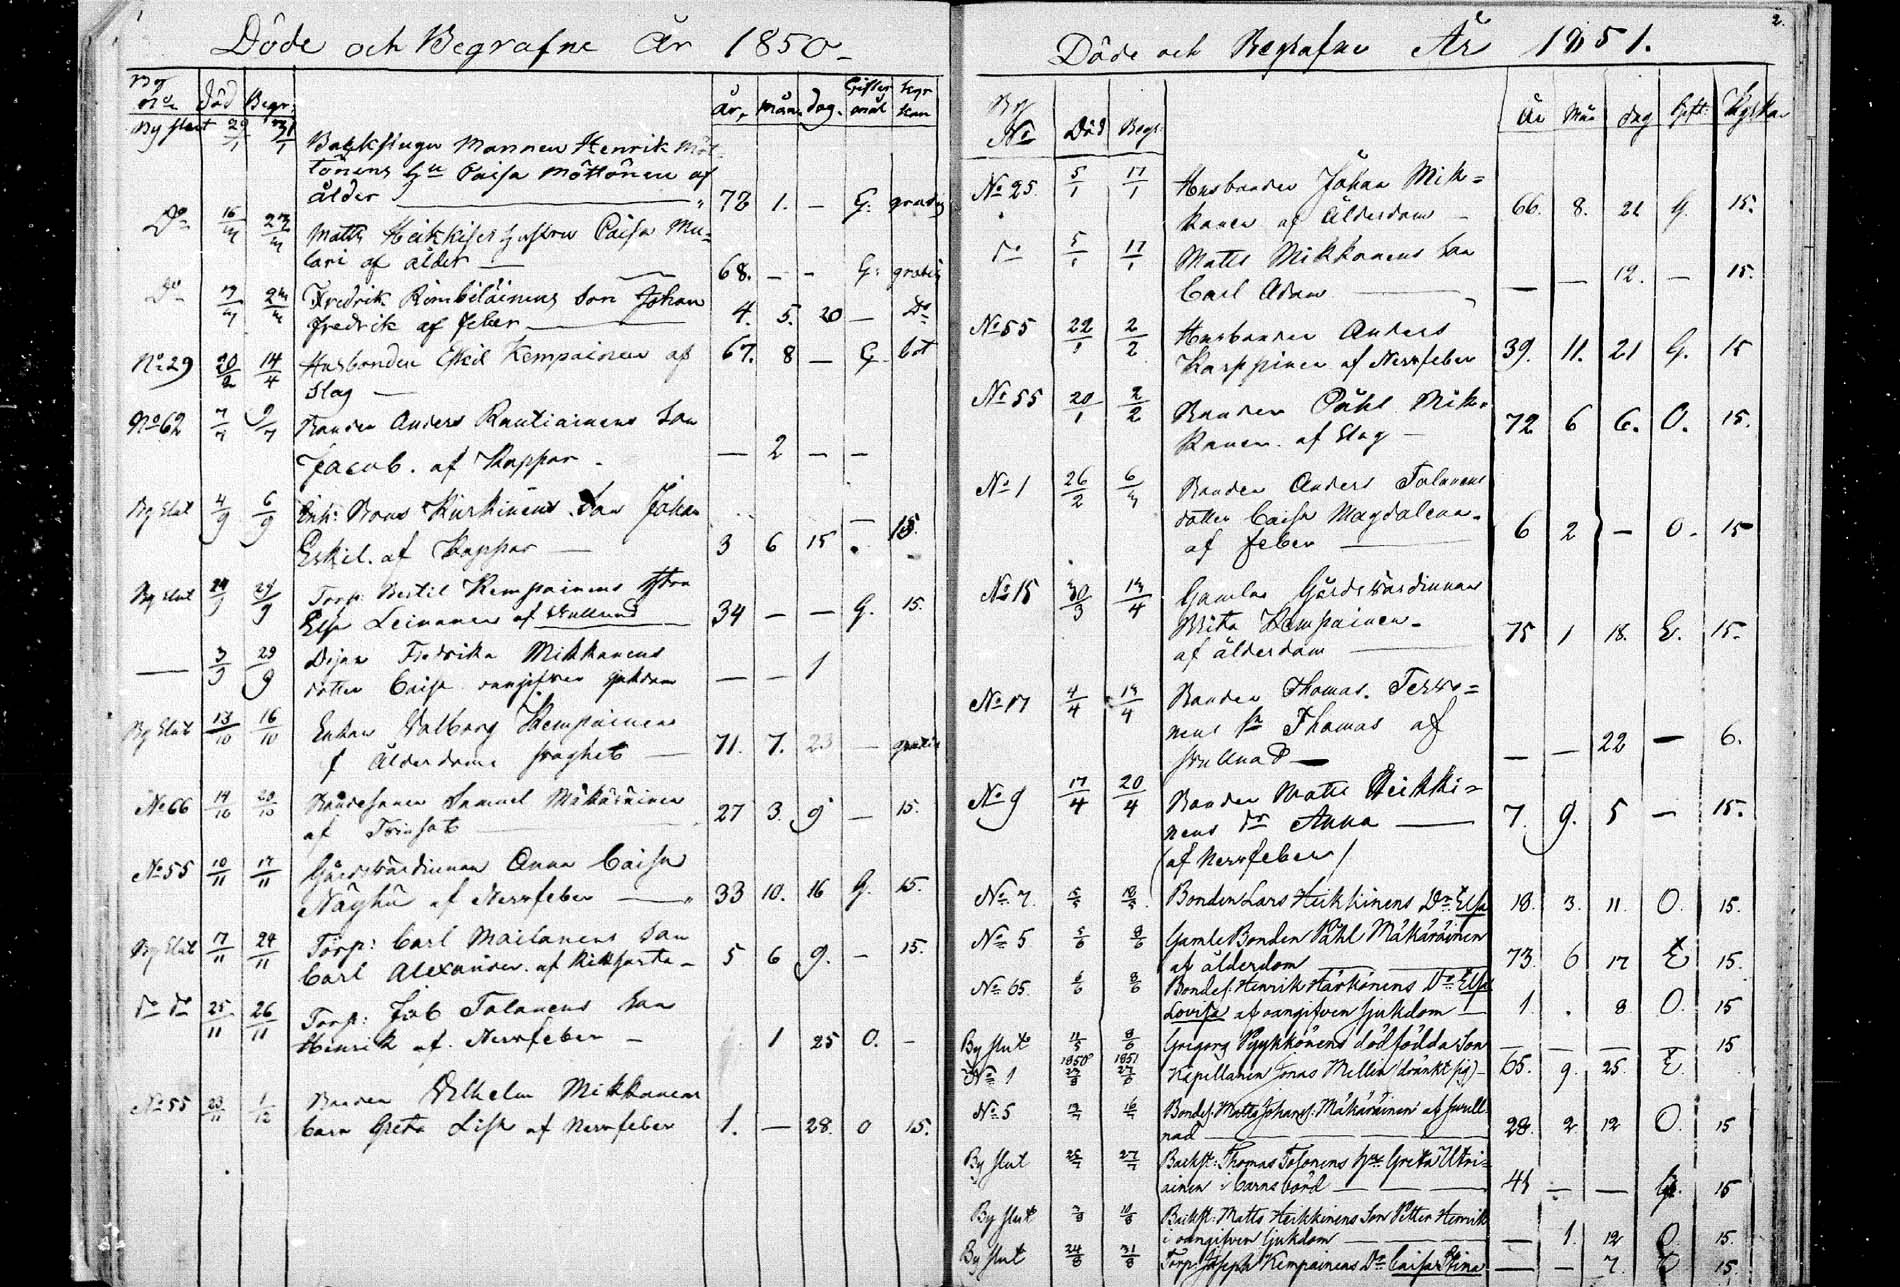 1
Döde och Begrafne År 1850
By No Död Begr: År, mån. dag. Giftermål kyrkan
By slut 29/1 Backstugu Mannen Henrik Möt-
tönens hu Caisa Möttönen af
ålder 72 1. — G: gratis
Do 16/3 Matts Heikkises hustru Caisa Mu-
lari af ålder 68. — — G: gratis
Do Fredrik Kimbiläinens Son Johan
Fredrik af feber 4. 5. 20 — Do
No 29 20/2 14/4 Husbonden Eskil Kempainen af 67. 8 — G. bot
Slag
No 62 7/7 9/7 Bonden Anders Rautiainens Son
Jacob. af Koppor — 2 — —
By Slut 4/9 6/9 Enk: Kurkinens Son Johan
Eskil. af Koppor 3 6 15 — 15.
By Slut 29/9 Torp: Bertil Kempainens
Elsa Leinonen af 34 — — G. 15.
— 3/9 29/9 Fredrika Mikkonens
dotter Caisa oangifven sjukdom — — 1
By Slut 13/10 16/10 Enkan Valborg Kempainen
f Ålderdoms svaghet 71. 7. 23 — gratis
No 66 14/10 20/10 Bondesonen Samuel Mäkäräinen
af 27 3. 9 — 15.
No 55 10/11 17/11 Gårdsvärdinnan Anna Caisa
af Nervfeber 33 10. 16 G. 15.
By Slut 17/11 24/11 Torp: Carl Moilanens Son
Carl Alexander. af Kikhosta 5 6 9. — 15.
Do Do 25/11 26/11 Torp: Job Tolonens Son
Henrik af. Nervfeber 1 25 O. —
No 55 23/11 1/12 Bonden Vilhelm Mikkonens
barn Greta Lisa af Nervfeber 1. — 28. O 15.
2.
Döde och Begrafne År 1851.
By No Död Begr. År Mån dag Gift: Kyrkan
No 25 5/1 17/1 Husbonden Johan Mik=
konen af Ålderdom 66. 8. 21 G. 15.
Do 5/1 17/1 Matts Mikkonens Son
Carl Adam — — 12. — 15.
No 55 22/1 2/2 Husbonden Anders
Karppinen af Nervfeber 39. 11. 21 G. 15
No 55 20/1 2/2 Bonden Påhl Mik=
konen. af Slag 72 6 6. O. 15.
No 1 26/2 6/3 Bonden Anders Tolonens
dotter Caisa Magdalena.
af feber 6 2 — O. 15
No 15 30/3 13/4 Gamla Gårdsvärdinnan
Brita Kempainen
af ålderdom 75 1 18. E. 15.
No 17 4/4 13/4 Bonden Thomas. Tervo=
nens Sn Thomas af
— — 22 — 6.
No 9 17/4 20/4 Bonden Matts Heikki=
nens Dr Anna 7. 9. 5 — 15.
(af Nervfeber)
No 7. Bonden Lars Heikkinens Dr Elsa 18. 3. 11. O. 15.
No 5 5/6 8/6 Gamle Bonden Påhl Mäkäräinen
af ålderdom 73. 6 17 E 15.
No 65. 8/6 Bondes: Henrik Härkönens Dr Elsa
Lovisa af oangifven sjukdom 1. . 8 O. 15
By slut 8/6 Gregorg Pyykkönens dödfödda Son — — — — 15
No 1 1850 1851 27/6 Kapellanen Jonas Mellin dränkt sig) 65. 9. 25. E
No 5 Bondes: Matts Johans: Mäkäräinen af svull-
nad 28. 2 12 O. 15
By slut 25/7 27/7 Backst: Thomas Tolonens hu: Greta Utri-
ainen i barnsbörd 41 — — G. 15
By slut 10/8 Backst: Matts Heikkinens Son Petter Henrik
i oangifven sjukdom — 1. 12 O 15.
By slut 24/8 31/8 Torp: Joseph Kempainens Dr Caisa Stina — — 7. 15